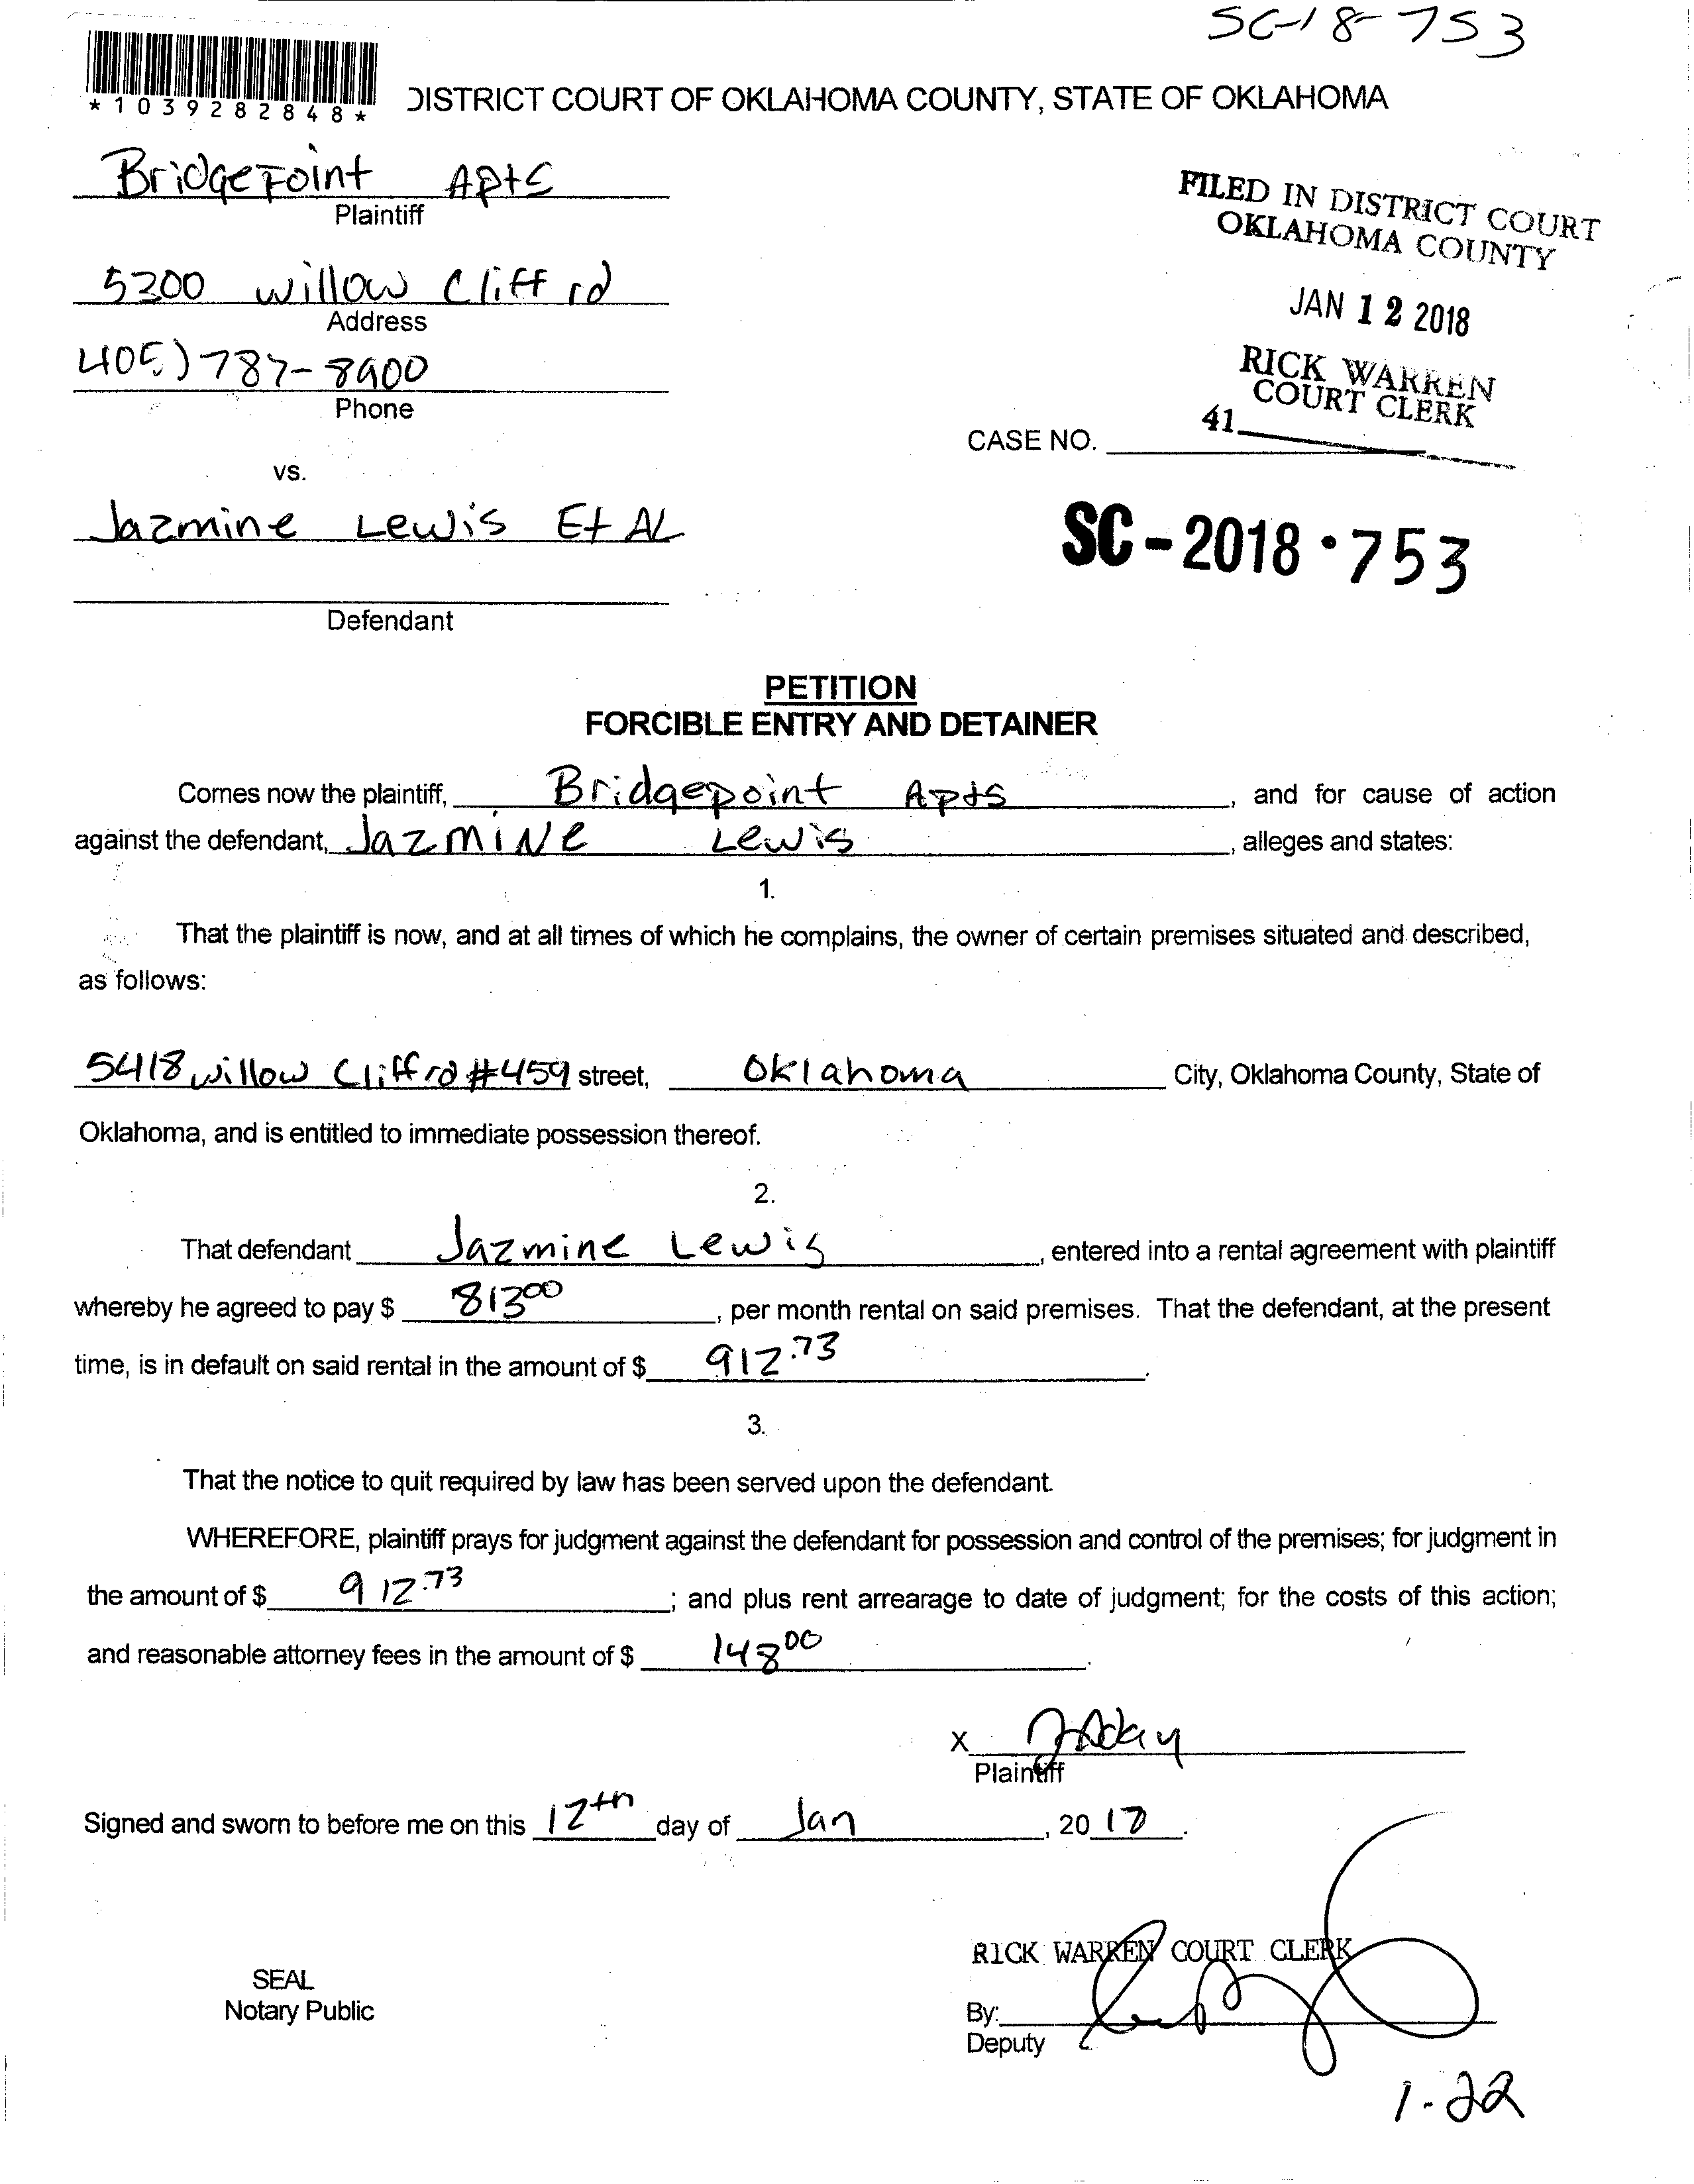 SC-18-753
*1039282848*
DISTRICT COURT OF OKLAHOMA COUNTY, STATE OF OKLAHOMA
BridgePoint Apts
Plaintiff
FILED IN DISTRICT COURT
OKLAHOMA COUNTY
5200 Willow Cliff rd
Address
JAN 12 2018
405) 787-8900
Phone
RICK WARREN
COURT CLERK
41
CASE NO.
vs.
Jazmine Lewis Et AL
SC-2018-753
Defendant
PETITION
FORCIBLE ENTRY AND DETAINER
Comes now the plaintiff, Bridgepoint Apts, and for cause of action
against the defendant, Jazmine Lewis, alleges and states:
1.
That the plaintiff is now, and at all times of which he complains, the owner of certain premises situated and described,
as follows:
5418 Willow Cliff rd #459 street, Oklahoma City, Oklahoma County, State of
Oklahoma, and is entitled to immediate possession thereof.
2.
That defendant Jazmine Lewis, entered into a rental agreement with plaintiff
whereby he agreed to pay $ 813 00, per month rental on said premises. That the defendant, at the present
time, is in default on said rental in the amount of $ 912.73.
3.
That the notice to quit required by law has been served upon the defendant.
WHEREFORE, plaintiff prays for judgment against the defendant for possession and control of the premises; for judgment in
the amount of $ 912.73; and plus rent arrearage to date of judgment; for the costs of this action;
and reasonable attorney fees in the amount of $ 148 00.
X
Plaintiff
Signed and sworn to before me on this 12th day of Jan, 2018.
RICK WARREN COURT CLERK
SEAL
Notary Public
By:
Deputy
1-22